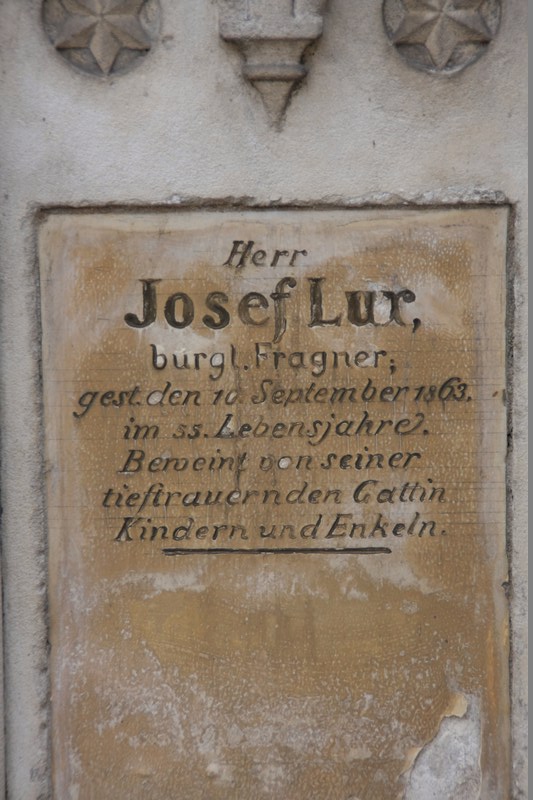 Herr
Josef Lux,
burgl. Fragner;
gest. den 10. September 1863.
im 55. Lebensjahre.
Beweint von seiner
tieftrauernden Gattin
Kindern und Enkeln.